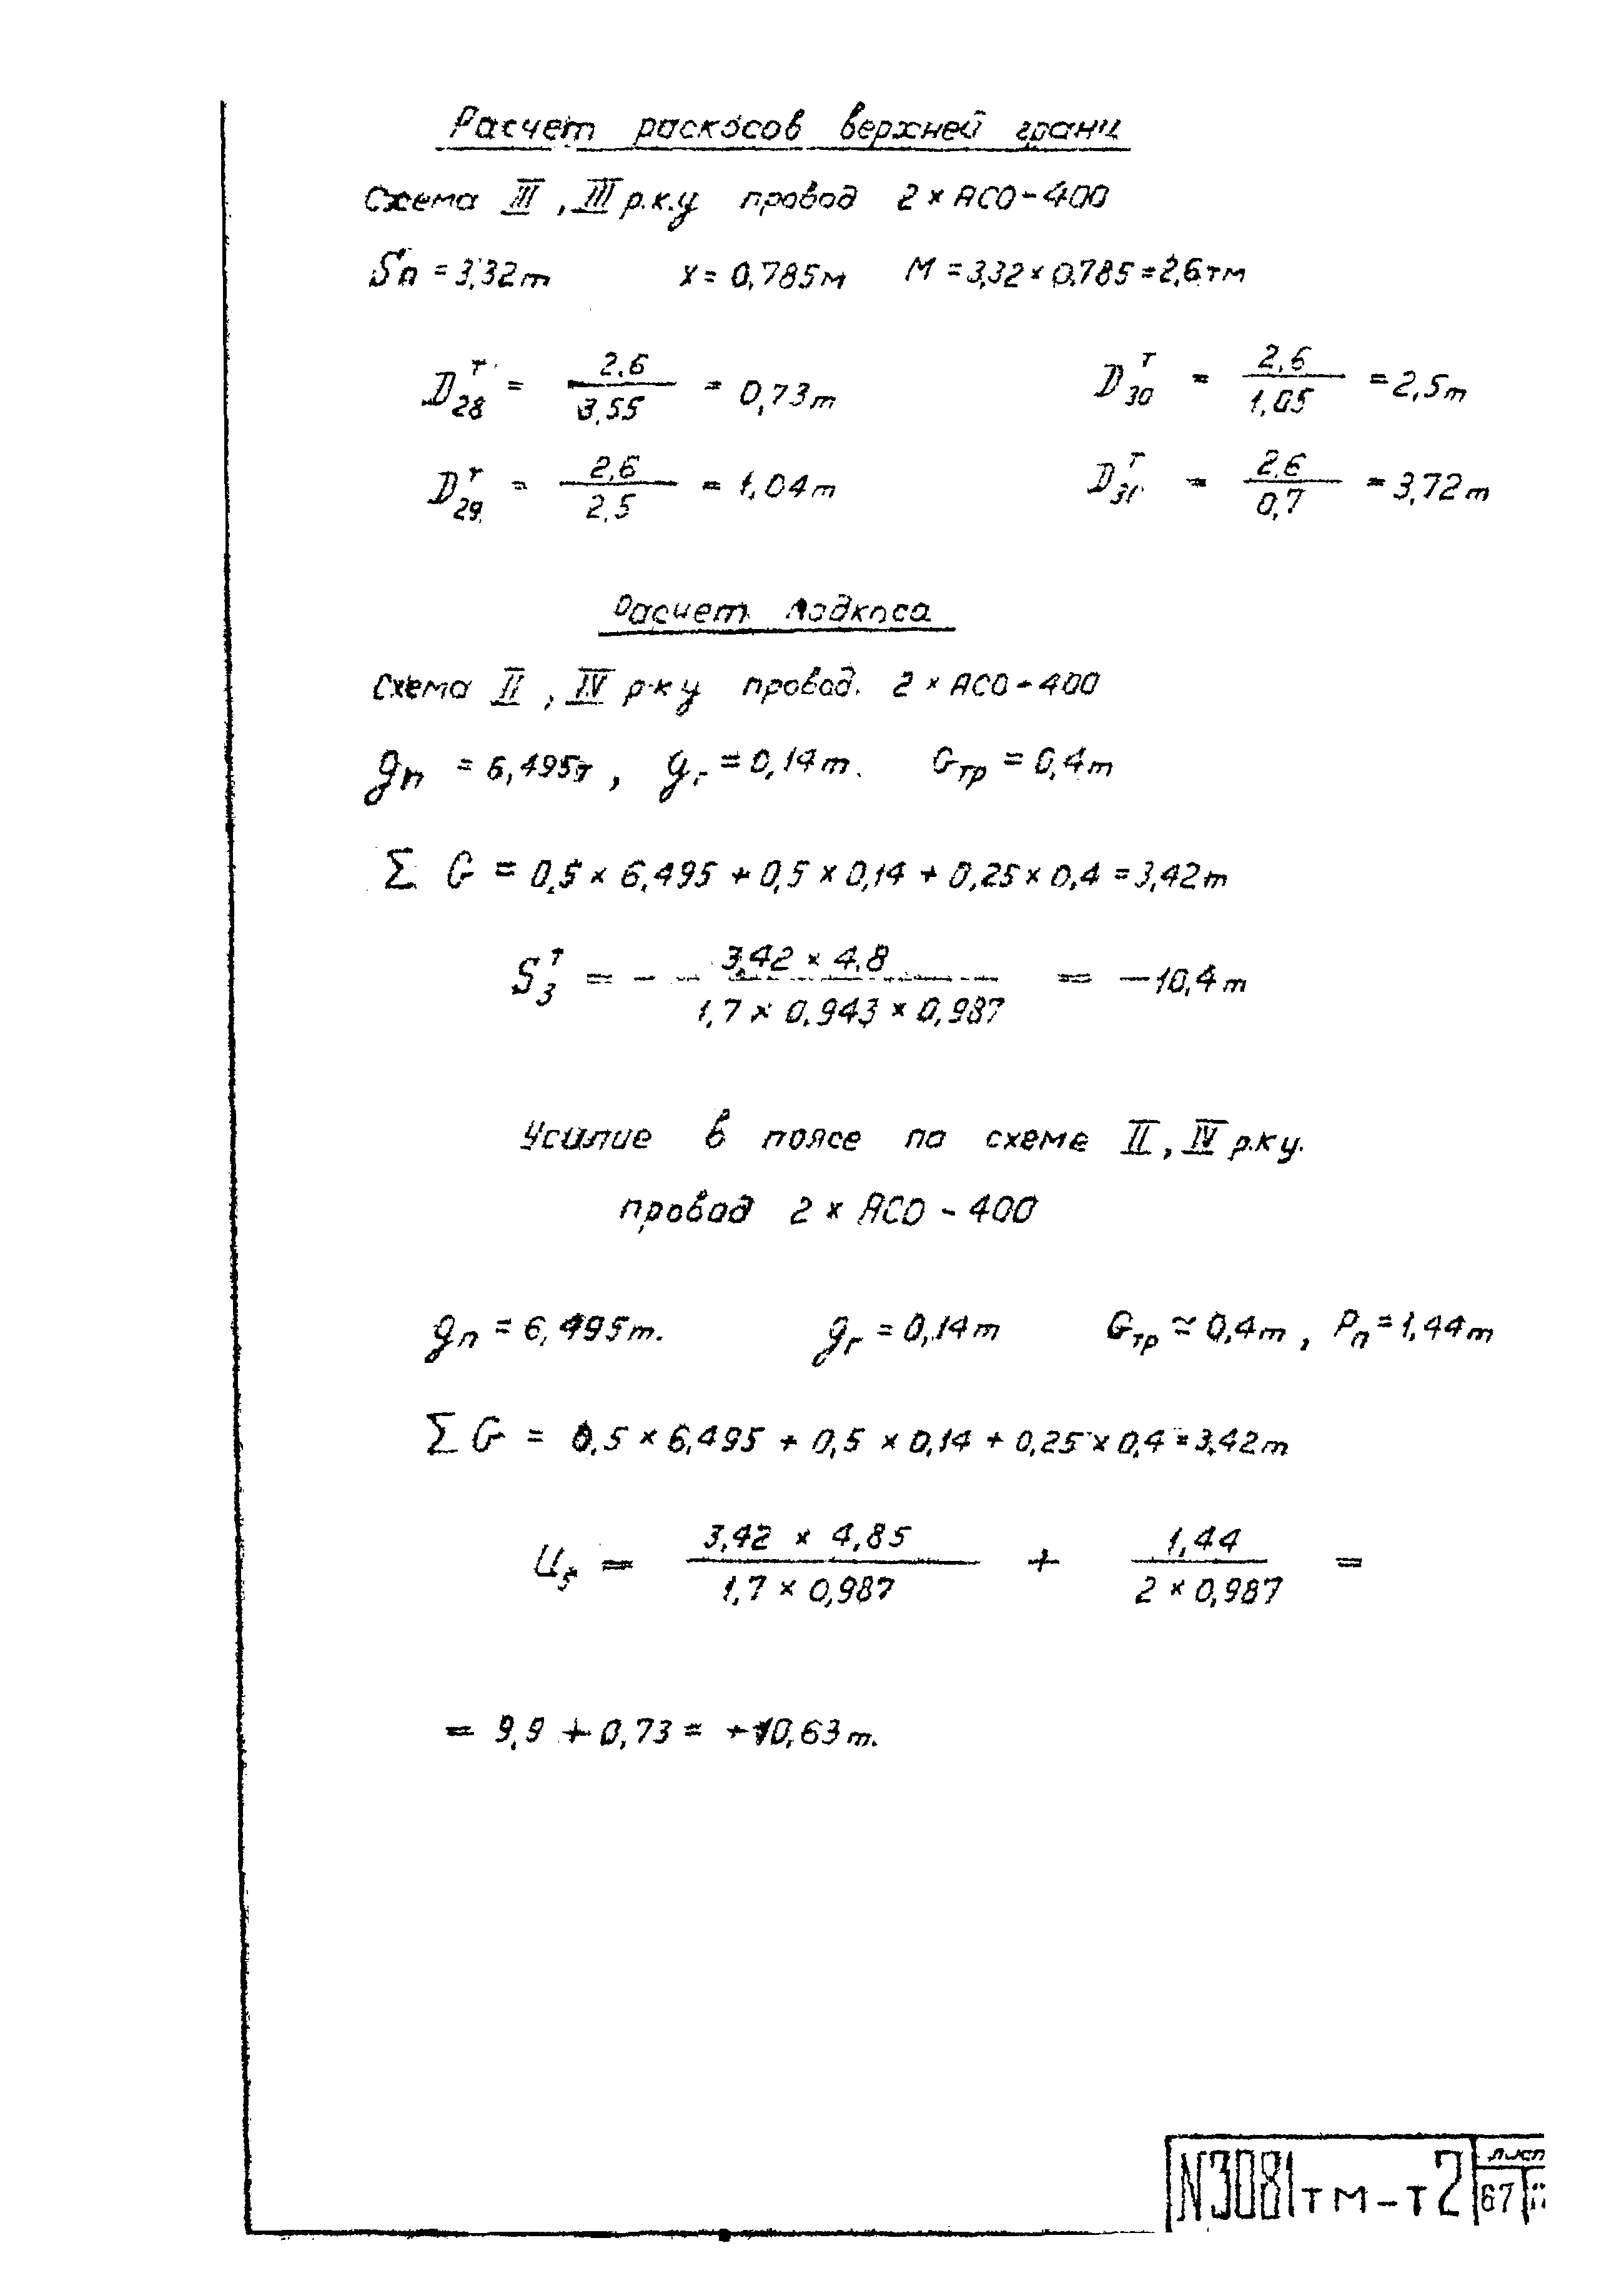 Расчет раскосов верхней грани
Схема III, III р.к.у провод 2×АСО-400
Sп = 3,32т   x = 0,785м   М = 3,32×0,785=2,6тм
D₂₈ᵀ = 2,6/3,55 = 0,73т   D₃₀ᵀ = 2,6/1,05 = 2,5т
D₂₉ᵀ = 2,6/2,5 = 1,04т   D₃₁ᵀ = 2,6/0,7 = 3,72т
Расчет подкоса
Схема II, IV р.к у провод. 2×АСО-400
gп = 6,495т, gг = 0,14т. Gтр = 0,4т
Σ G = 0,5×6,495+0,5×0,14+0,25×0,4=3,42т
S₃ᵀ = - 3,42×4,8/1,7×0,943×0,987 = -10,4т
Усилие в поясе по схеме II, IV р.к у.
провод 2×АСО-400
gп = 6,495т.   gг = 0,14т   Gтр ≃ 0,4т, Рп = 1,44т
Σ G = 0,5×6,495+0,5×0,14+0,25×0,4=3,42т
U₅ = 3,42×4,85/1,7×0,987 + 1,44/2×0,987 =
= 9,9+0,73= +10,63т.
N3081тм-т2 лист 67